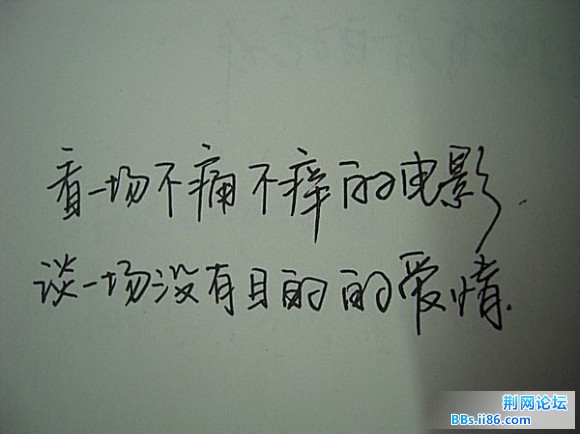 看一场不痛不痒的电影.
谈一场没有目的的爱情.
荆网论坛
BBs.ii86.com